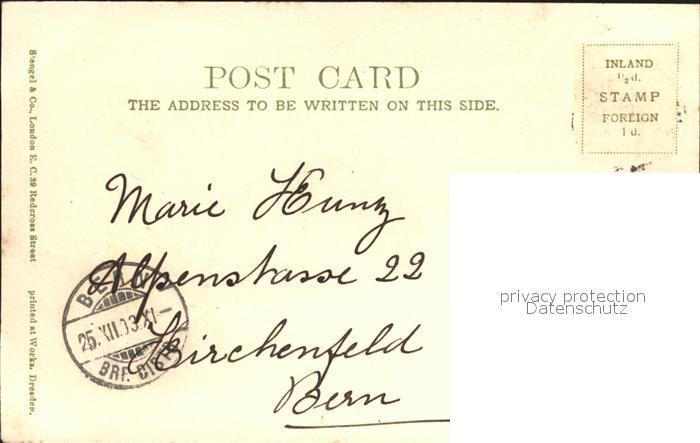 POST CARD
THE ADDRESS TO BE WRITTEN ON THIS SIDE.
INLAND
½ d.
STAMP
FOREIGN
1 d.
Stengel & Co., London E. C. 39 Redcross Street printed at Works, Dresden.
Marie Hunz
Alpenstrasse 22
Kirchenfeld
Bern
BERN
25.XII.03.XI–
BRF.
privacy protection
Datenschutz